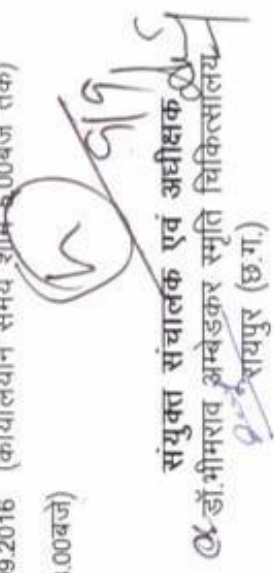 9.2016 (कार्यालयीन समय शाम 5.00बजे तक)
.00बजे)
संयुक्त संचालक एवं अधीक्षक
डॉ.भीमराव अम्बेडकर स्मृति चिकित्सालय
रायपुर (छ.ग.)